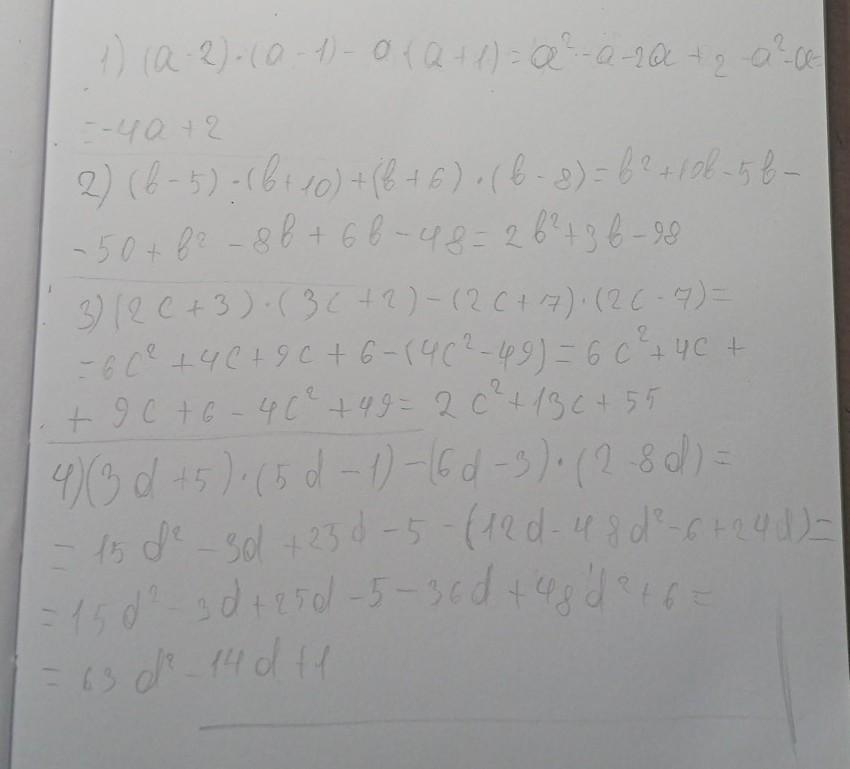 1) (a-2)·(a-1)-a(a+1)=a²-a-2a+2-a²-a=
=-4a+2
2) (b-5)·(b+10)+(b+6)·(b-8)=b²+10b-5b-
-50+b²-8b+6b-48=2b²+3b-98
3)(2c+3)·(3c+2)-(2c+7)·(2c-7)=
=6c²+4c+9c+6-(4c²-49)=6c²+4c+
+9c+6-4c²+49=2c²+13c+55
4)(3d+5)·(5d-1)-(6d-3)·(2-8d)=
=15d²-3d+25d-5-(12d-48d²-6+24d)=
=15d²-3d+25d-5-36d+48d²+6=
=63d²-14d+1